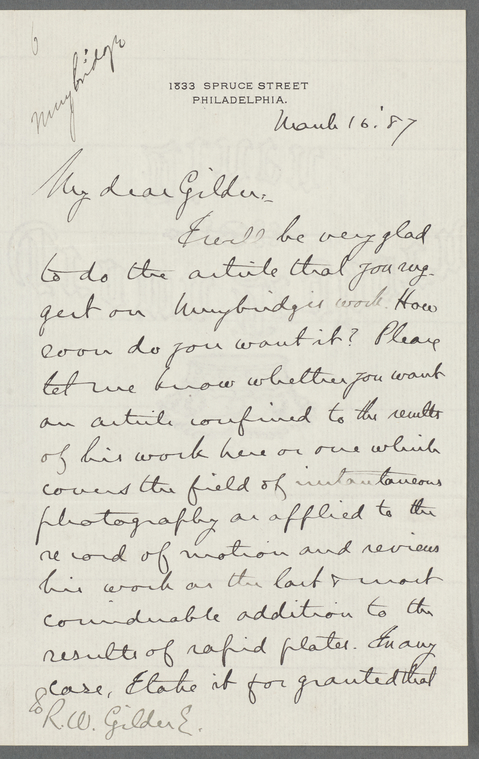 6
Muybridge
1833 SPRUCE STREET
PHILADELPHIA.
March 16. '87
My dear Gilder:-
I will be very glad
to do the article that you sug-
gest on Muybridge's work. How
soon do you want it? Please
let me know whether you want
an article confined to the results
of his work here or one which
covers the field of instantaneous
photography as applied to the
record of motion and reviews
his work as the last & most
considerable addition to the
results of rapid plates. In any
case, I take it for granted that
To R. W. Gilder E.